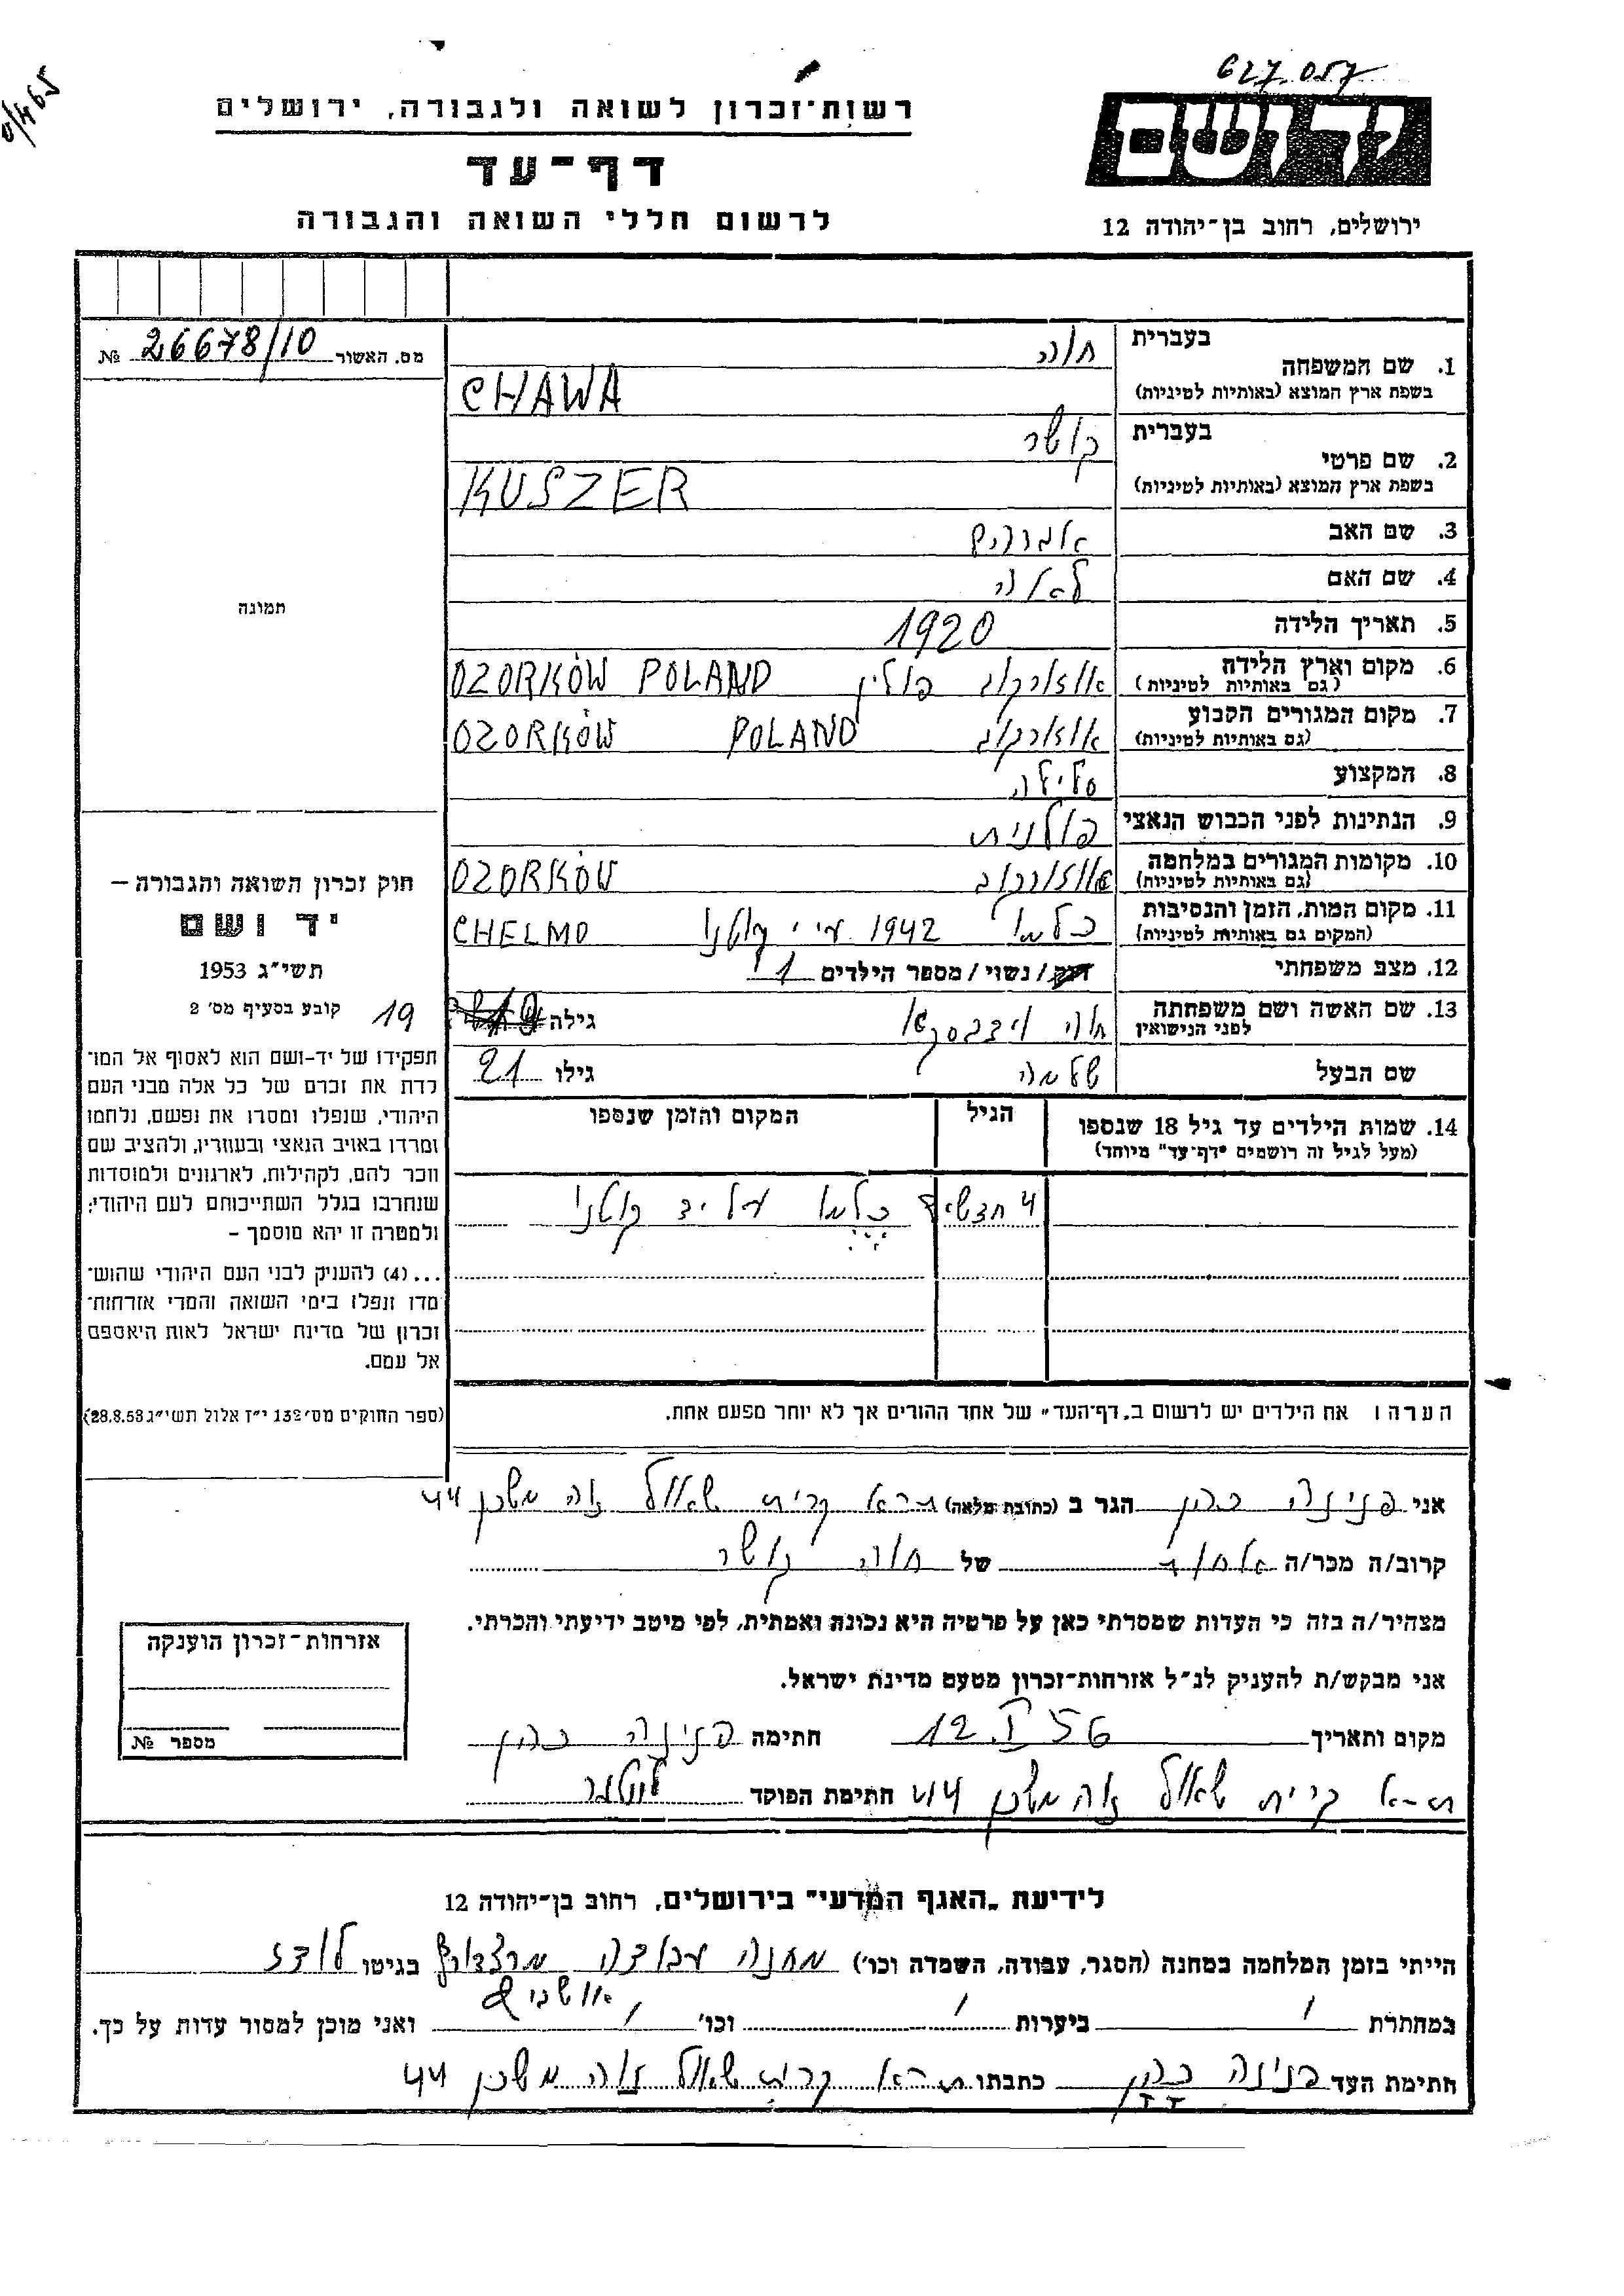 627.057
0/465
יד ושם
ירושלים, רחוב בן-יהודה 12
רשות-זכרון לשואה ולגבורה, ירושלים
דף-עד
לרשום חללי השואה והגבורה
מס. האשור 26678/10 №
1. שם המשפחה בעברית חוה
בשפת ארץ המוצא (באותיות לטיניות) CHAWA
2. שם פרטי בעברית קושר
בשפת ארץ המוצא (באותיות לטיניות) KUSZER
3. שם האב אברהם
4. שם האם לאה
5. תאריך הלידה 1920
6. מקום וארץ הלידה (גם באותיות לטיניות) אוזורקוב פולין OZORKÓW POLAND
7. מקום המגורים הקבוע (גם באותיות לטיניות) אוזורקוב POLAND OZORKÓW
8. המקצוע
9. הנתינות לפני הכבוש הנאצי פולנית
10. מקומות המגורים במלחמה (גם באותיות לטיניות) אוזורקוב OZORKÓW
11. מקום המות, הזמן והנסיבות (המקום גם באותיות לטיניות) כלמנו 1942 ע"י קוטנו CHELMO
12. מצב משפחתי רוק/נשוי/מספר הילדים 1
13. שם האשה ושם משפחתה לפני הנישואין חוה גילה 19
שם הבעל שלמה גילו 21
14. שמות הילדים עד גיל 18 שנספו (מעל לגיל זה רושמים "דף-עד" מיוחד) הגיל המקום והזמן שנספו
4 חדשים כלמנו על יד קוטנו
הערה: את הילדים יש לרשום ב"דף-העד" של אחד ההורים אך לא יותר מפעם אחת.
תמונה
חוק זכרון השואה והגבורה –
יד ושם
תשי"ג 1953
קובע בסעיף מס' 2
תפקידו של יד-ושם הוא לאסוף אל המו־
לדת את זכרם של כל אלה מבני העם
היהודי, שנפלו ומסרו את נפשם, נלחמו
ומרדו באויב הנאצי ובעוזריו, ולהציב שם
וזכר להם, לקהילות, לארגונים ולמוסדות
שנחרבו בגלל השתייכותם לעם היהודי;
ולמטרה זו יהא מוסמך –
...(4) להעניק לבני העם היהודי שהוש־
מדו ונפלו בימי השואה והמרי אזרחות־
זכרון של מדינת ישראל לאות היאספם
אל עמם.
(ספר החוקים מס' 132 י"ז אלול תשי"ג 28.8.53)
אני פנינה כהן הגר ב (כתובת מלאה) ת-א קרית שאול נוה משכן 44
קרוב/ה מכר/ה אחות של חוה קושר
מצהיר/ה בזה כי העדות שמסרתי כאן על פרטיה היא נכונה ואמתית, לפי מיטב ידיעתי והכרתי.
אני מבקש/ת להעניק לנ"ל אזרחות-זכרון מטעם מדינת ישראל.
מקום ותאריך 12.I 56 חתימה פנינה כהן
ת-א קרית שאול נוה משכן 44 חתימת הפוקד
אזרחות-זכרון הוענקה
מספר №
לידיעת "האגף המדעי" בירושלים, רחוב בן-יהודה 12
הייתי בזמן המלחמה במחנה (הסגר, עבודה, השמדה וכו') מחנה עבודה בגיטו לודז
אושביץ
במחתרת / ביערות / וכו' / ואני מוכן למסור עדות על כך.
חתימת העד פנינה כהן כתבתו ת-א קרית שאול נוה משכן 44